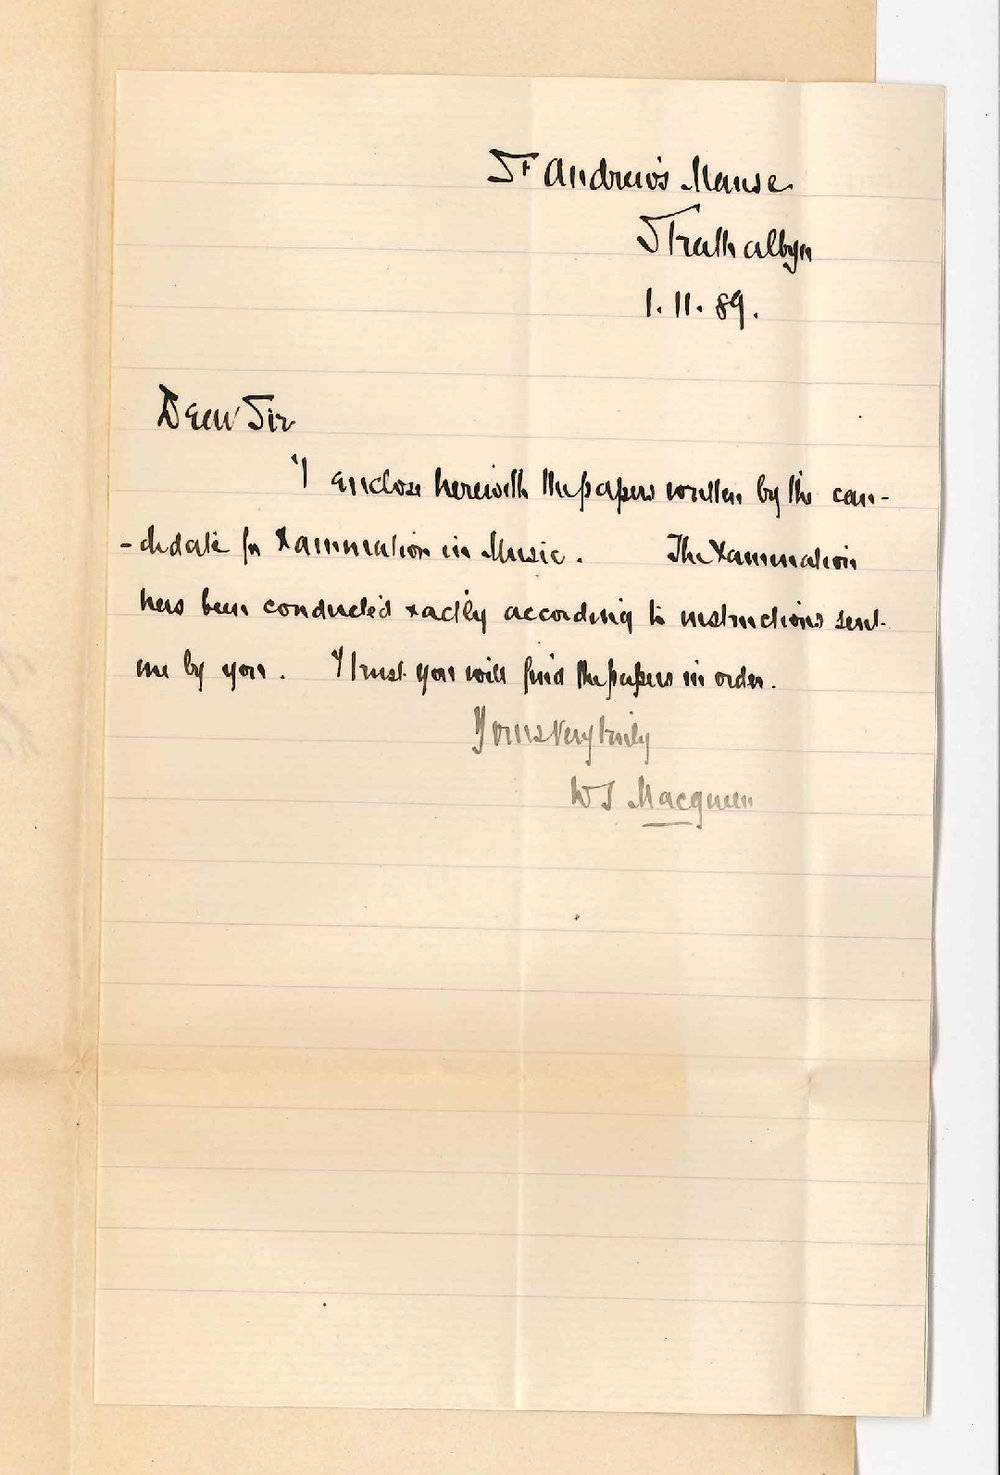 St Andrew's Manse
Strathalbyn
1.11.89.
Dear Sir
I enclose herewith the papers written by the can-
-didate for Xamination in Music. The Xamination
has been conducted xactly according to instructions sent
me by you. I trust you will find the papers in order.
Yours very truly
W S Macqueen